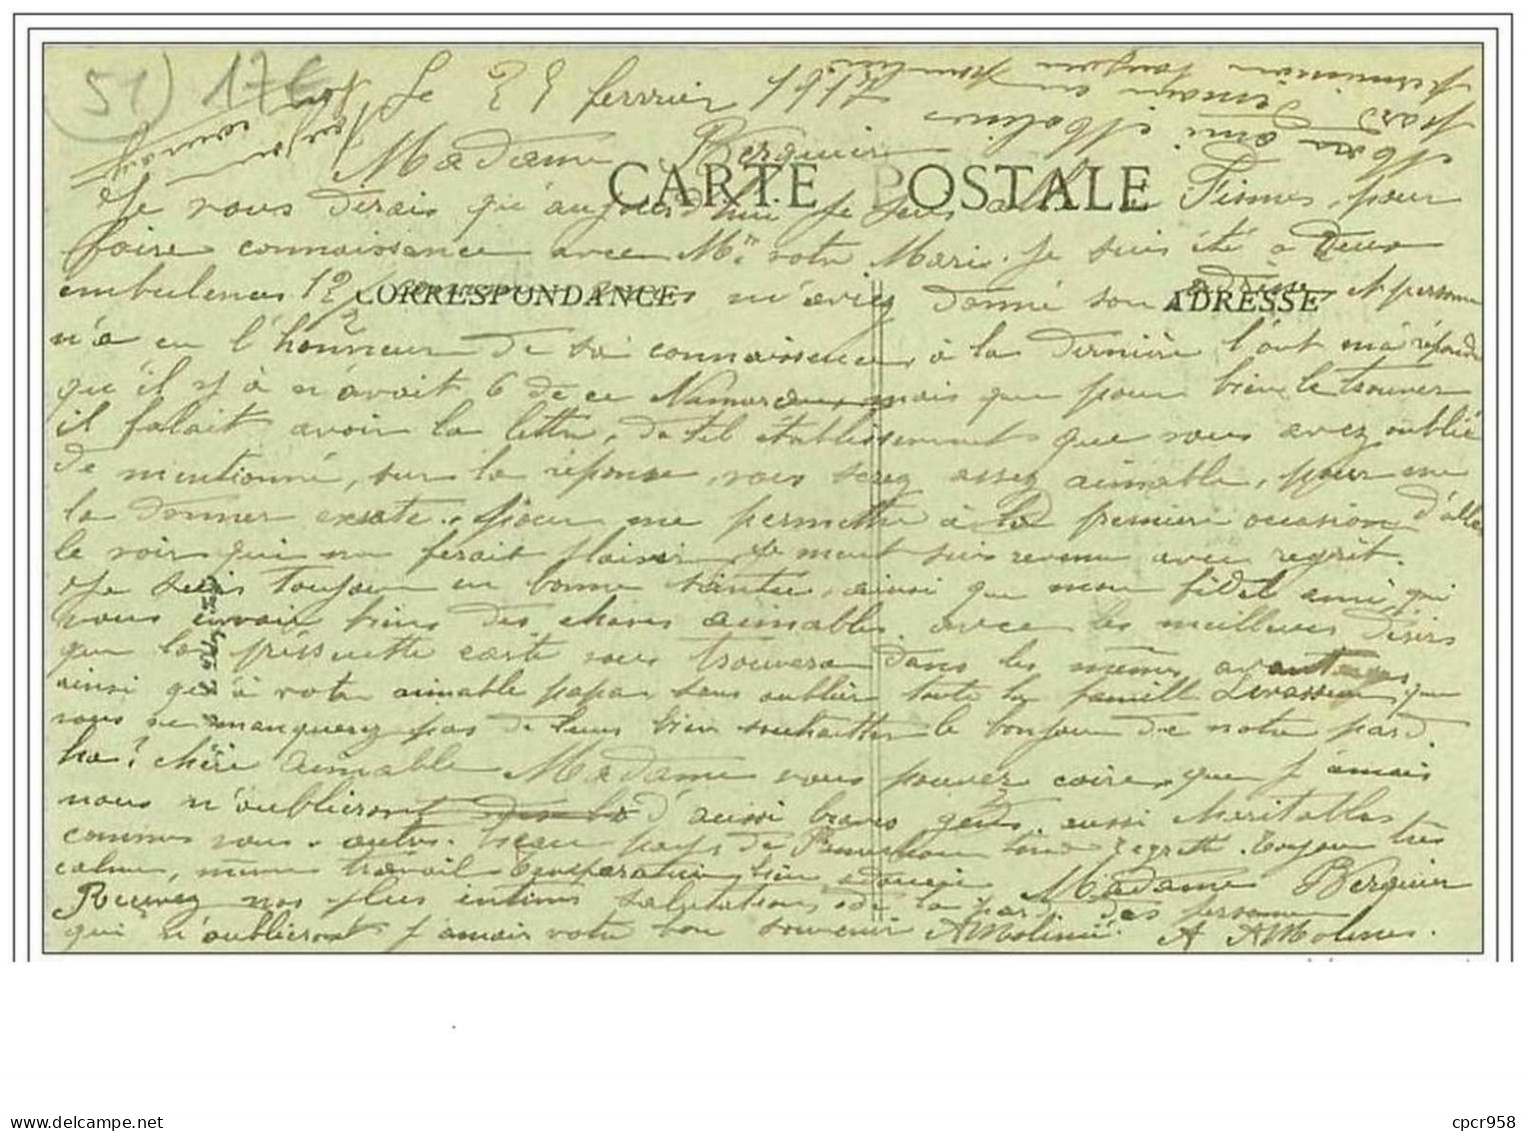 51) 17€
Le 25 ferrier 191
Madame Berquier
CARTE POSTALE
Je vous dirais qu'aujourd'hui je suis allé a Fismes, pour
faire connaissance avec Mr votre Mari. Je suis été a deux
embulences 12 m'aviez donné son adrese et personne
CORRESPONDANCE ADRESSE
n'a eu l'honneur de sa connaissence, à la dernière l'ont m'a répondu
qu'il y à n'avait 6 de ce Namareau, mais que pour bien le trouver
il falait avoir la lettre, de tel établissement que vous avez oublié
de mentionné, sur la réponse vous serez assez aimable, pour me
la donner exsate. pour me permettre à la premiere occasion d'allé
le voir qui me ferait plaisir je ment suis revenu avec regrit.
Je suis toujour en bonne santée, ainsi que mon fidel ami, qui
vous envoir biens des choses aimables. avec les meilleures désirs
que la préssentte carte vous trouvera dans les mêmes avantages
ainsi qu'à votre aimable papa sans oublier toute la famille Levasseur, que
vous ne manquerez pas de leurs bien souhaitter le bonjour de notre pard.
ha! chère aimable Madame vous pouvez coire, que j'amais
nous n'oublieront d'aussi braves gens, aussi charitables
commes vous autres. beau pays de regretté. Toujour très
calme, même travail temperature bien adoucie Madame Berquier
Recevez nos plus intimes salutations de la pard des personnes
qui n'oublieront j'amais votre bon souvenir AMolines. A AMolines.
Mon ami Molines
pard Demain en
permission toujour
cpcr958